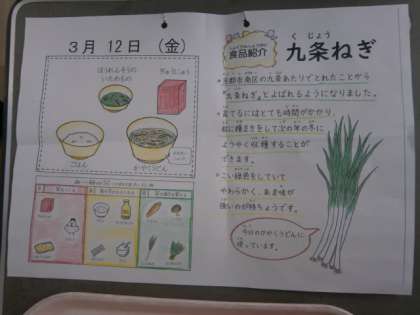 3月 12日 (金)
ほうれんそうの
いためもの
ぎゅうにゅう
ごはん
かやくうどん
食品紹介
くじょう
九条ねぎ
京都市南区の九条あたりでとれたことから
"九条ねぎ"とよばれるようになりました。
育てるにはとても時間がかかり、
秋に種まきをして次の年の冬に
ようやく収穫することが
できます。
こい緑色をしていて
やわらかく、あま味が
強いのが特ちょうです。
今日のかやくうどんに
使っています。